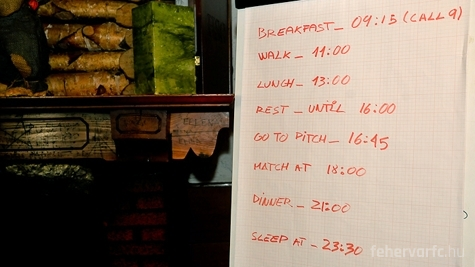 BREAKFAST_ 09:15 (CALL 9)
WALK - 11:00
LUNCH - 13:00
REST - UNTIL 16:00
GO TO PITCH - 16:45
MATCH AT 18:00
DINNER - 21:00
SLEEP AT - 23:30
fehervarfc.hu